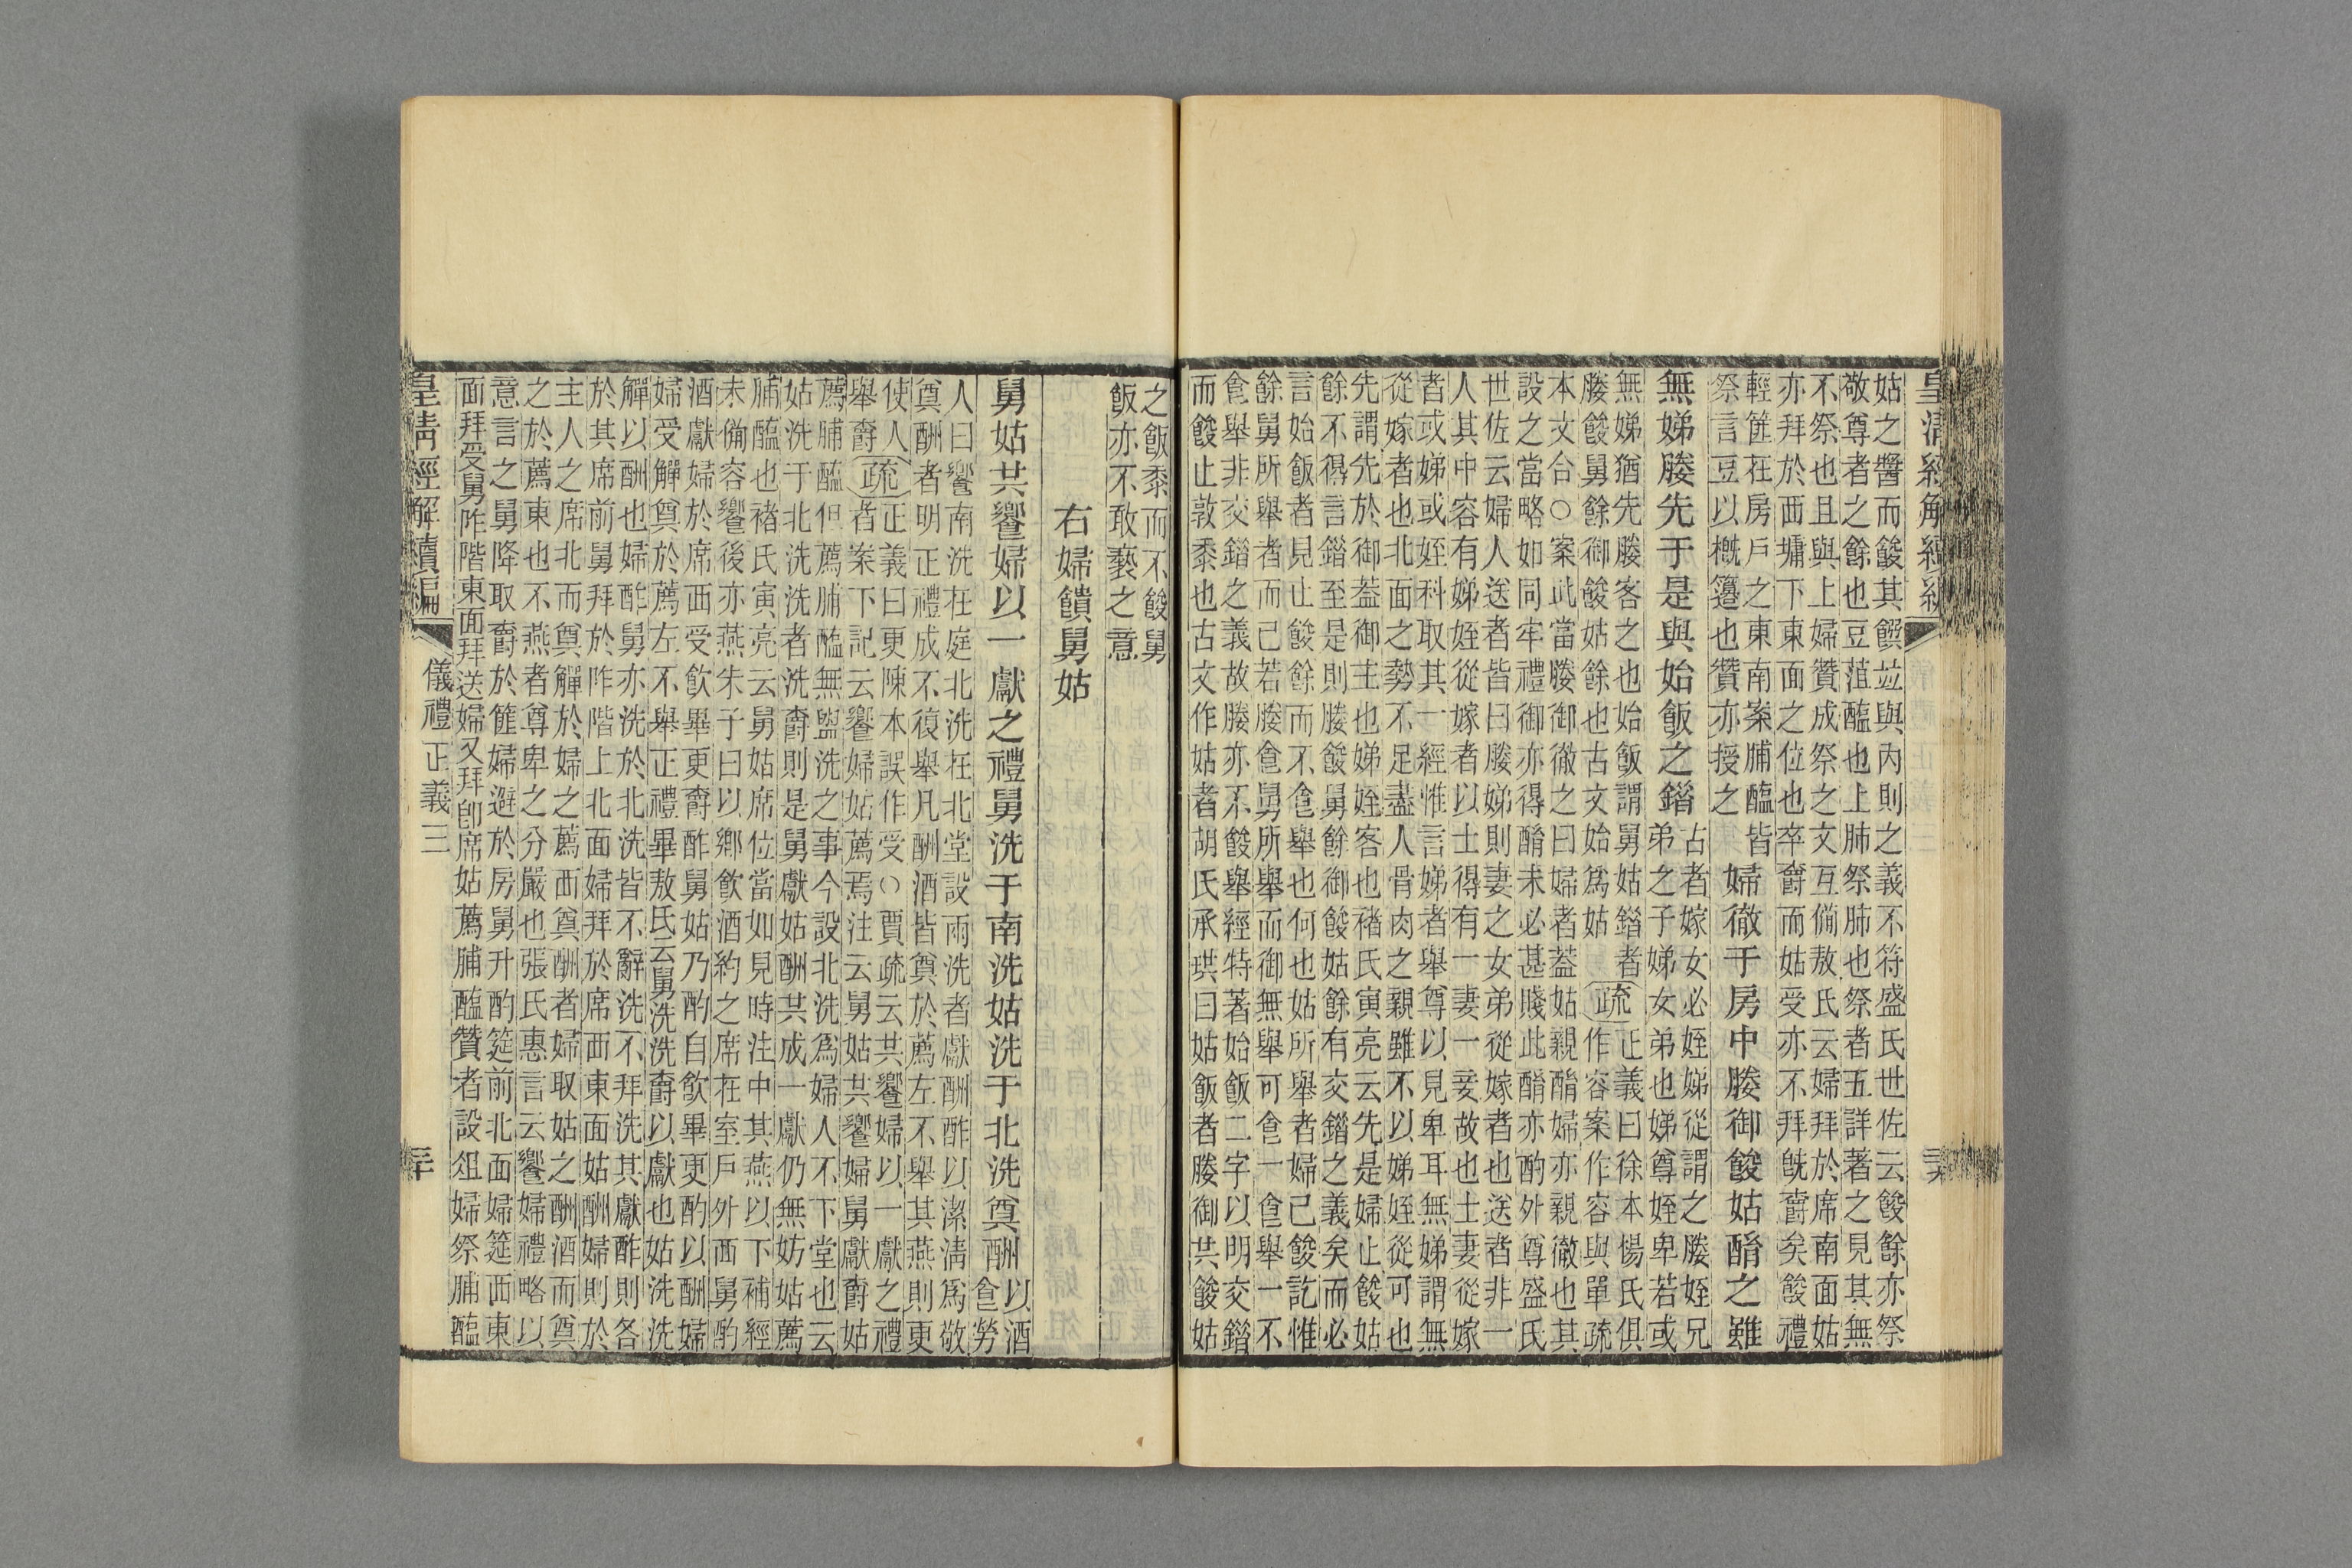 姑之醬而餕其饌竝與內則之義不符盛氏世佐云餕餘亦祭
敬尊者之餘也豆菹醢也上肺祭肺也祭者五詳著之見其無
不祭也且與上婦贊成祭之文互備敖氏云婦拜於席南面姑
亦拜於西墉下東面之位也卒爵而姑受亦不拜旣爵矣餕禮
輕篚在房戶之東南案脯醢皆
祭言豆以概籩也贊亦授之
婦徹于房中媵御餕姑酳之雖
無娣媵先于是與始飯之錯
古者嫁女必姪娣從謂之媵姪兄
弟之子娣女弟也娣尊姪卑若或
無娣猶先媵客之也始飯謂舅姑錯者
媵餕舅餘御餕姑餘也古文始爲姑
疏
正義曰徐本楊氏俱
作容案作容與單疏
本文合○案此當媵御徹之曰婦者蓋姑親酳婦亦親徹也其
設之當略如同牢禮御亦得酳未必甚賤此酳亦酌外尊盛氏
世佐云婦人送者皆曰媵娣則妻之女弟從嫁者也送者非一
人其中容有娣姪從嫁者以士得有一妻一妾故也士妻從嫁
者或娣或姪科取其一經惟言娣者舉尊以見卑耳無娣謂無
從嫁者也北面之勢不足盡人骨肉之親雖不以娣姪從可也
先謂先於御蓋御主也娣姪客也褚氏寅亮云先是婦止餕姑
餘不得言錯至是則媵餕舅餘御餕姑餘有交錯之義矣而必
言始飯者見止餕餘而不食舉也何也姑所舉者婦已餕訖惟
餘舅所舉者而已若媵食舅所舉而御無舉可食一食舉一不
食舉非交錯之義故媵亦不餕舉經特著始飯二字以明交錯
而餕止敦黍也古文作姑者胡氏承珙曰姑飯者媵御共餕姑
之飯黍而不餕舅
飯亦不敢褻之意
右婦饋舅姑
舅姑共饗婦以一獻之禮舅洗于南洗姑洗于北洗奠酬
以酒
食勞
人曰饗南洗在庭北洗在北堂設兩洗者獻酬酢以潔清爲敬
奠酬者明正禮成不復舉凡酬酒皆奠於薦左不舉其燕則更
使人
舉爵
疏
正義曰更陳本誤作受○賈疏云共饗婦以一獻之禮
者案下記云饗婦姑薦焉注云舅姑共饗婦舅獻爵姑
薦脯醢但薦脯醢無盥洗之事今設北洗爲婦人不下堂也云
姑洗于北洗洗者洗爵則是舅獻姑酬共成一獻仍無妨姑薦
脯醢也褚氏寅亮云舅姑席位當如見時注中其燕以下補經
未備容饗後亦燕朱子曰以鄉飲酒約之席在室戶外西舅酌
酒獻婦於席西受飲畢更爵酢舅姑乃酌自飲畢更酌以酬婦
婦受觶奠於薦左不舉正禮畢敖氏云舅洗洗爵以獻也姑洗洗
觶以酬也婦酢舅亦洗於北洗皆不辭洗不拜洗其獻酢則各
於其席前舅拜於阼階上北面婦拜於席西東面姑酬婦則於
主人之席北而奠觶於婦之薦西奠酬者婦取姑之酬酒而奠
之於薦東也不燕者尊卑之分嚴也張氏惠言云饗婦禮略以
意言之舅降取爵於篚婦避於房舅升酌筵前北面婦筵西東
面拜受舅阼階東面拜送婦又拜卽席姑薦脯醢贊者設俎婦祭脯醢
皇清經解續編
儀禮正義三